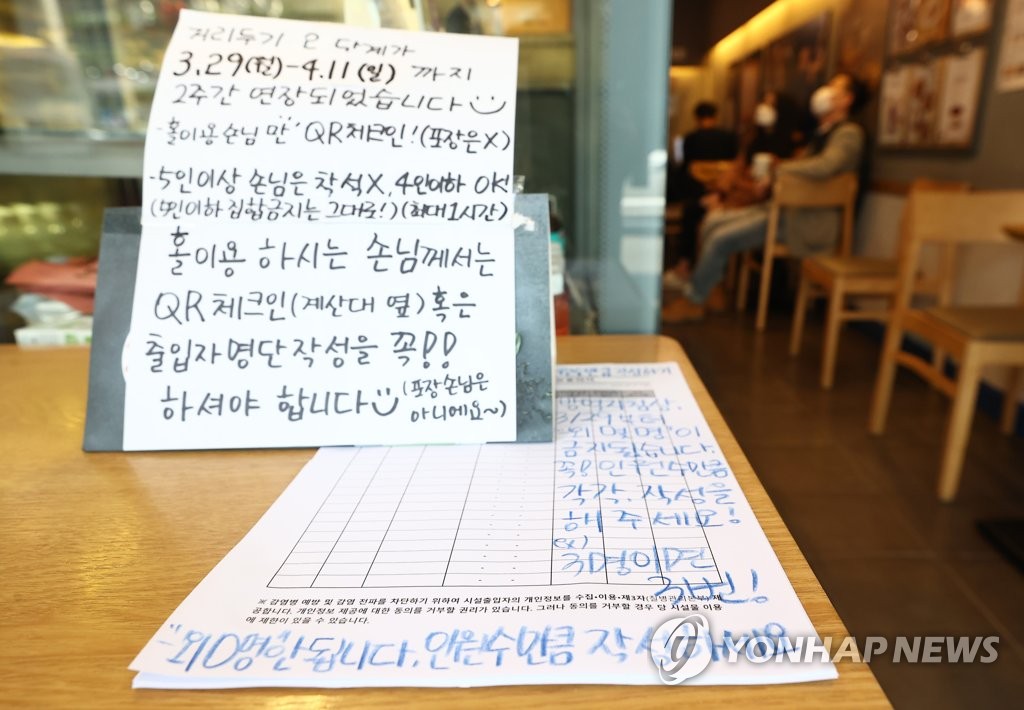 거리두기 2 단계가
3.29(월)-4.11(일) 까지
2주간 연장되었습니다
-홀이용손님 만" QR체크인!(포장은X)
-5인이상 손님은 착석X, 4인이하 OK!
(5인이하 집합금지는 그대로!)(최대1시간)
홀이용 하시는 손님께서는
QR체크인(계산대 옆)혹은
출입자명단작성을 꼭!!
하셔야 합니다 (포장손님은
아니에요~)
"외 몇 명"이
금지됩니다.
꼭! 인원수만큼
각각. 작성을
해 주세요!
(ex)
3명이면
3번!
※ 감염병 예방 및 감염 전파를 차단하기 위하여 시설출입자의 개인정보를 수집·이용·제3자(질병관리본부)제
공합니다. 개인정보 제공에 대한 동의를 거부할 권리가 있습니다. 그러나 동의를 거부할 경우 당 시설을 이용
에 제한이 있을 수 있습니다.
-"외 0명"안됩니다. 인원수만큼 작성해주세요
YONHAP NEWS